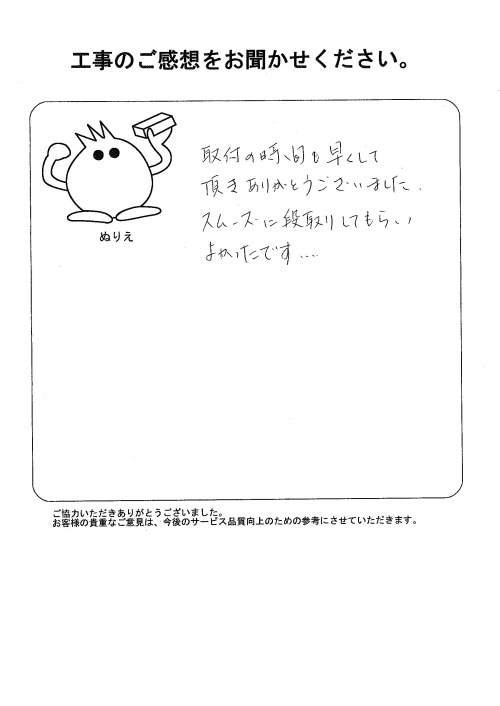 工事のご感想をお聞かせください。
取付の時間も早くして
頂きありがとうございました.
スムーズに段取りしてもらい
よかったです....
ぬりえ
ご協力いただきありがとうございました。
お客様の貴重なご意見は、今後のサービス品質向上のための参考にさせていただきます。